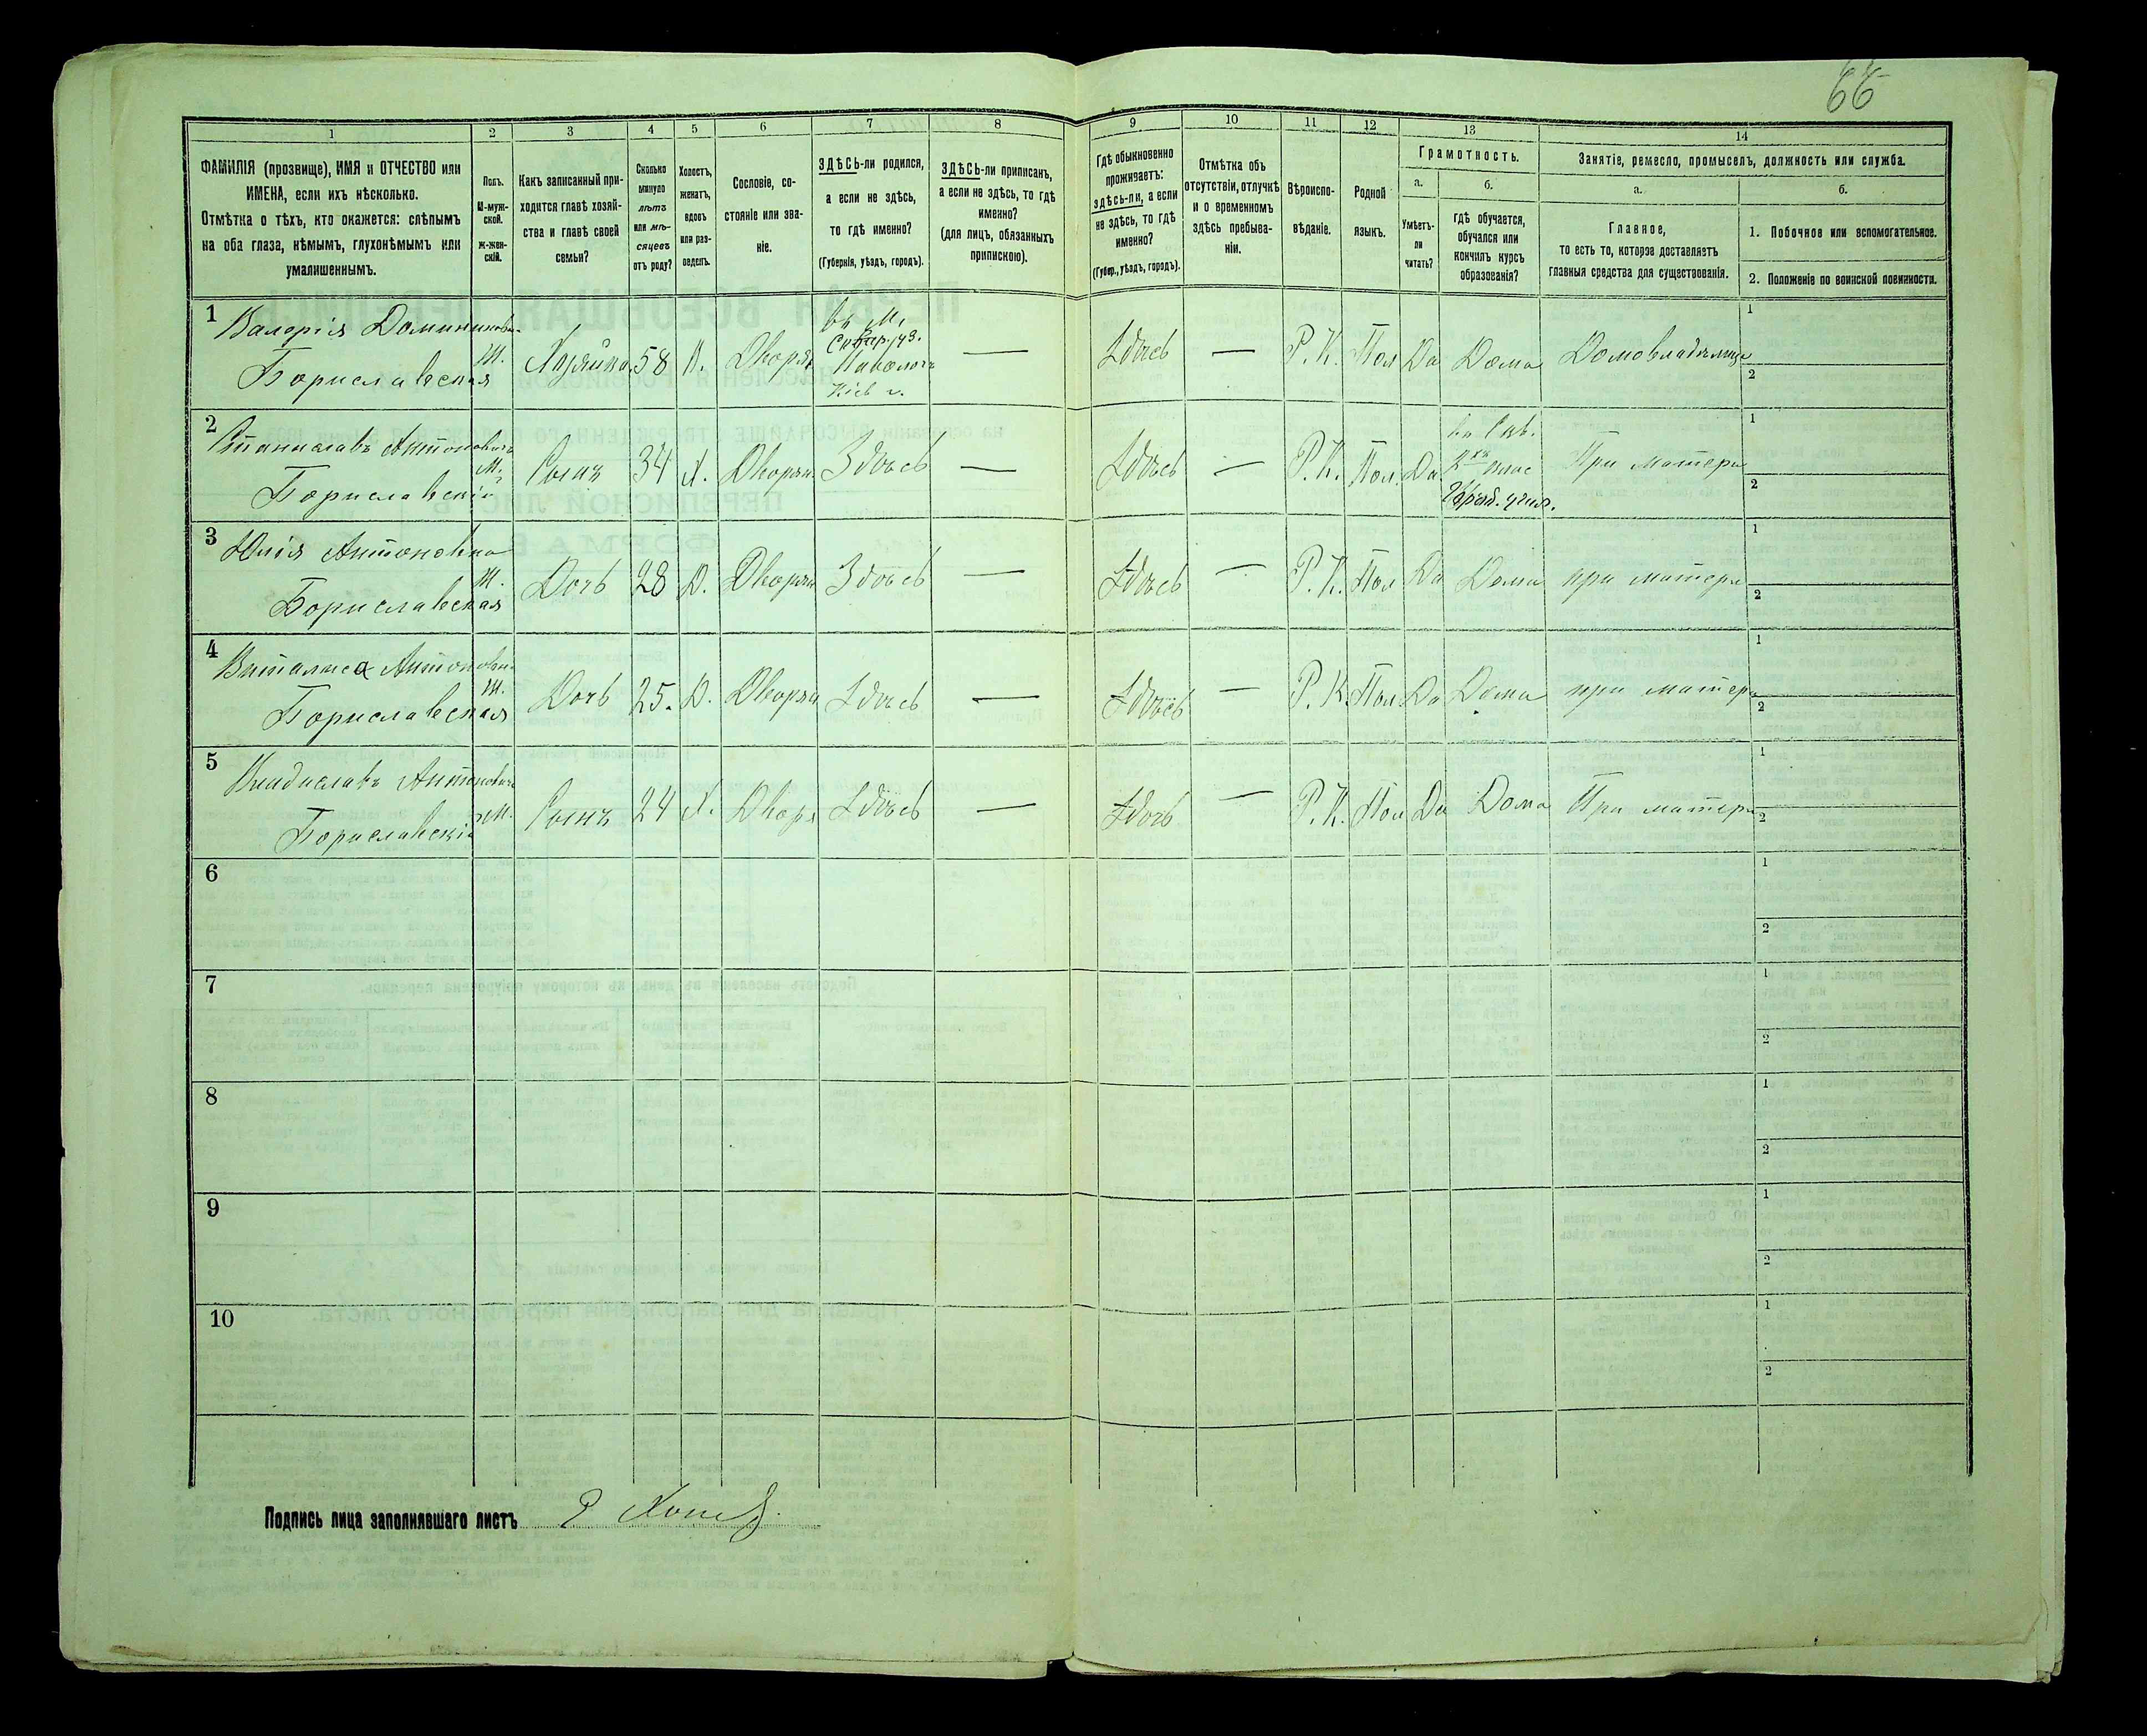 66
1 2 3 4 5 6 7 8 9 10 11 12 13 14
ФАМИЛІЯ (прозвище), ИМЯ и ОТЧЕСТВО или
ИМЕНА, если ихъ нѣсколько.
Отмѣтка о тѣхъ, кто окажется: слѣпымъ
на оба глаза, нѣмымъ, глухонѣмымъ или
умалишеннымъ.
Полъ.
М-муж-
ской.
ж-жен-
скій.
Какъ записанный при-
ходится главѣ хозяй-
ства и главѣ своей
семьи?
Сколько
минуло
лѣтъ
или мѣ-
сяцевъ
отъ роду?
Холостъ,
женатъ,
вдовъ
или раз-
веденъ.
Сословіе, со-
стояніе или зва-
ніе.
ЗДѢСЬ-ли родился,
а если не здѣсь,
то гдѣ именно?
(Губернія, уѣздъ, городъ).
ЗДѢСЬ-ли приписанъ,
а если не здѣсь, то гдѣ
именно?
(для лицъ, обязанныхъ
припискою).
Гдѣ обыкновенно
проживаетъ:
здѣсь-ли, а если
не здѣсь, то гдѣ
именно?
(Губер., уѣздъ, городъ).
Отмѣтка объ
отсутствіи, отлучкѣ
и о временномъ
здѣсь пребыва-
ніи.
Вѣроиспо-
вѣданіе.
Родной
языкъ.
Грамотность.
а.
Умѣетъ-
ли
читать?
б.
гдѣ обучается,
обучался или
кончилъ курсъ
образованія?
Занятіе, ремесло, промыселъ, должность или служба.
а.
Главное,
то есть то, которое доставляетъ
главныя средства для существованія.
б.
1. Побочное или вспомогательное.
2. Положеніе по воинской повинности.
1
Валерія Доминиковн.
Бориславская
Ж.
Хозяйка
58
В.
Дворян
въ м.
Сквир. уѣз.
Паволочь
Кіев г.
—
Здѣсь
—
Р. К.
Пол
Да
Дома
Домовладѣлица
1
2
2
Станиславъ Антоновичъ
Бориславскій
М.
Сынъ
34
Х.
Дворян
Здѣсь
—
Здѣсь
—
Р. К.
Пол.
Да
2хъ клас
При матери
1
2
3
Юлія Антоновна
Бориславская
Ж.
Дочь
28
Д.
Дворян
Здѣсь
—
Здѣсь
—
Р. К.
Пол
Да
Дома
при матери
1
2
4
Виталиса Антоновн.
Бориславская
Ж.
Дочь
25.
Д.
Дворян
Здѣсь
—
Здѣсь
—
Р. К
Пол.
Да
Дома
при матери
1
2
5
Владиславъ Антоновичъ
Бориславскій
М.
Сынъ
24
Х.
Двор
Здѣсь
—
Здѣсь
—
Р. К.
Пол
Да
Дома
При матери
1
2
6
1
2
7
1
2
8
1
2
9
1
2
10
1
2
Подпись лица заполнявшаго листъ